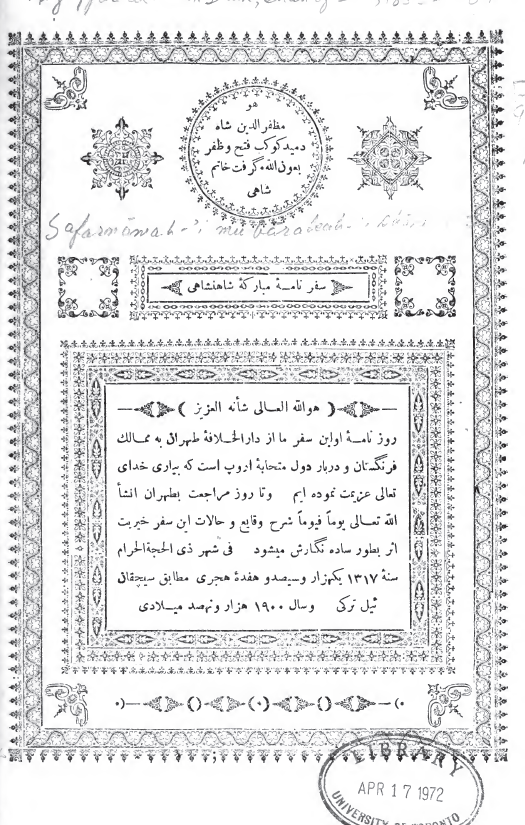 هو
مظفر الدین شاه
دمید کوکب فتح و ظفر
بعون الله گرفت خاتم
شاهی
Safarnāmah-'i mubārakah-'i
سفر نامــهٔ مبارکهٔ شاهنشاهی
( هوالله العـالی شأنه العزیز )
روز نامــهٔ اولین سفر ما از دار الخلافهٔ طهران به ممـالك
فرنگستان و دربار دول متحابهٔ اروپ است که بیاری خدای
تعالی عزیمت نموده ایم وتا روز مراجعت بطهران انشأ
الله تعـالی یوماً فیوماً شرح وقایع و حالات این سفر خیریت
اثر بطور ساده نگارش میشود فی شهر ذی الحجةالحرام
سنهٔ ۱۳۱۷ یکهزار وسیصدو هفدهٔ هجری مطابق سیچقان
ئیل ترکی وسال ۱۹۰۰ هزار ونهصد میـلادی
LIBRARY
APR 17 1972
UNIVERSITY OF TORONTO